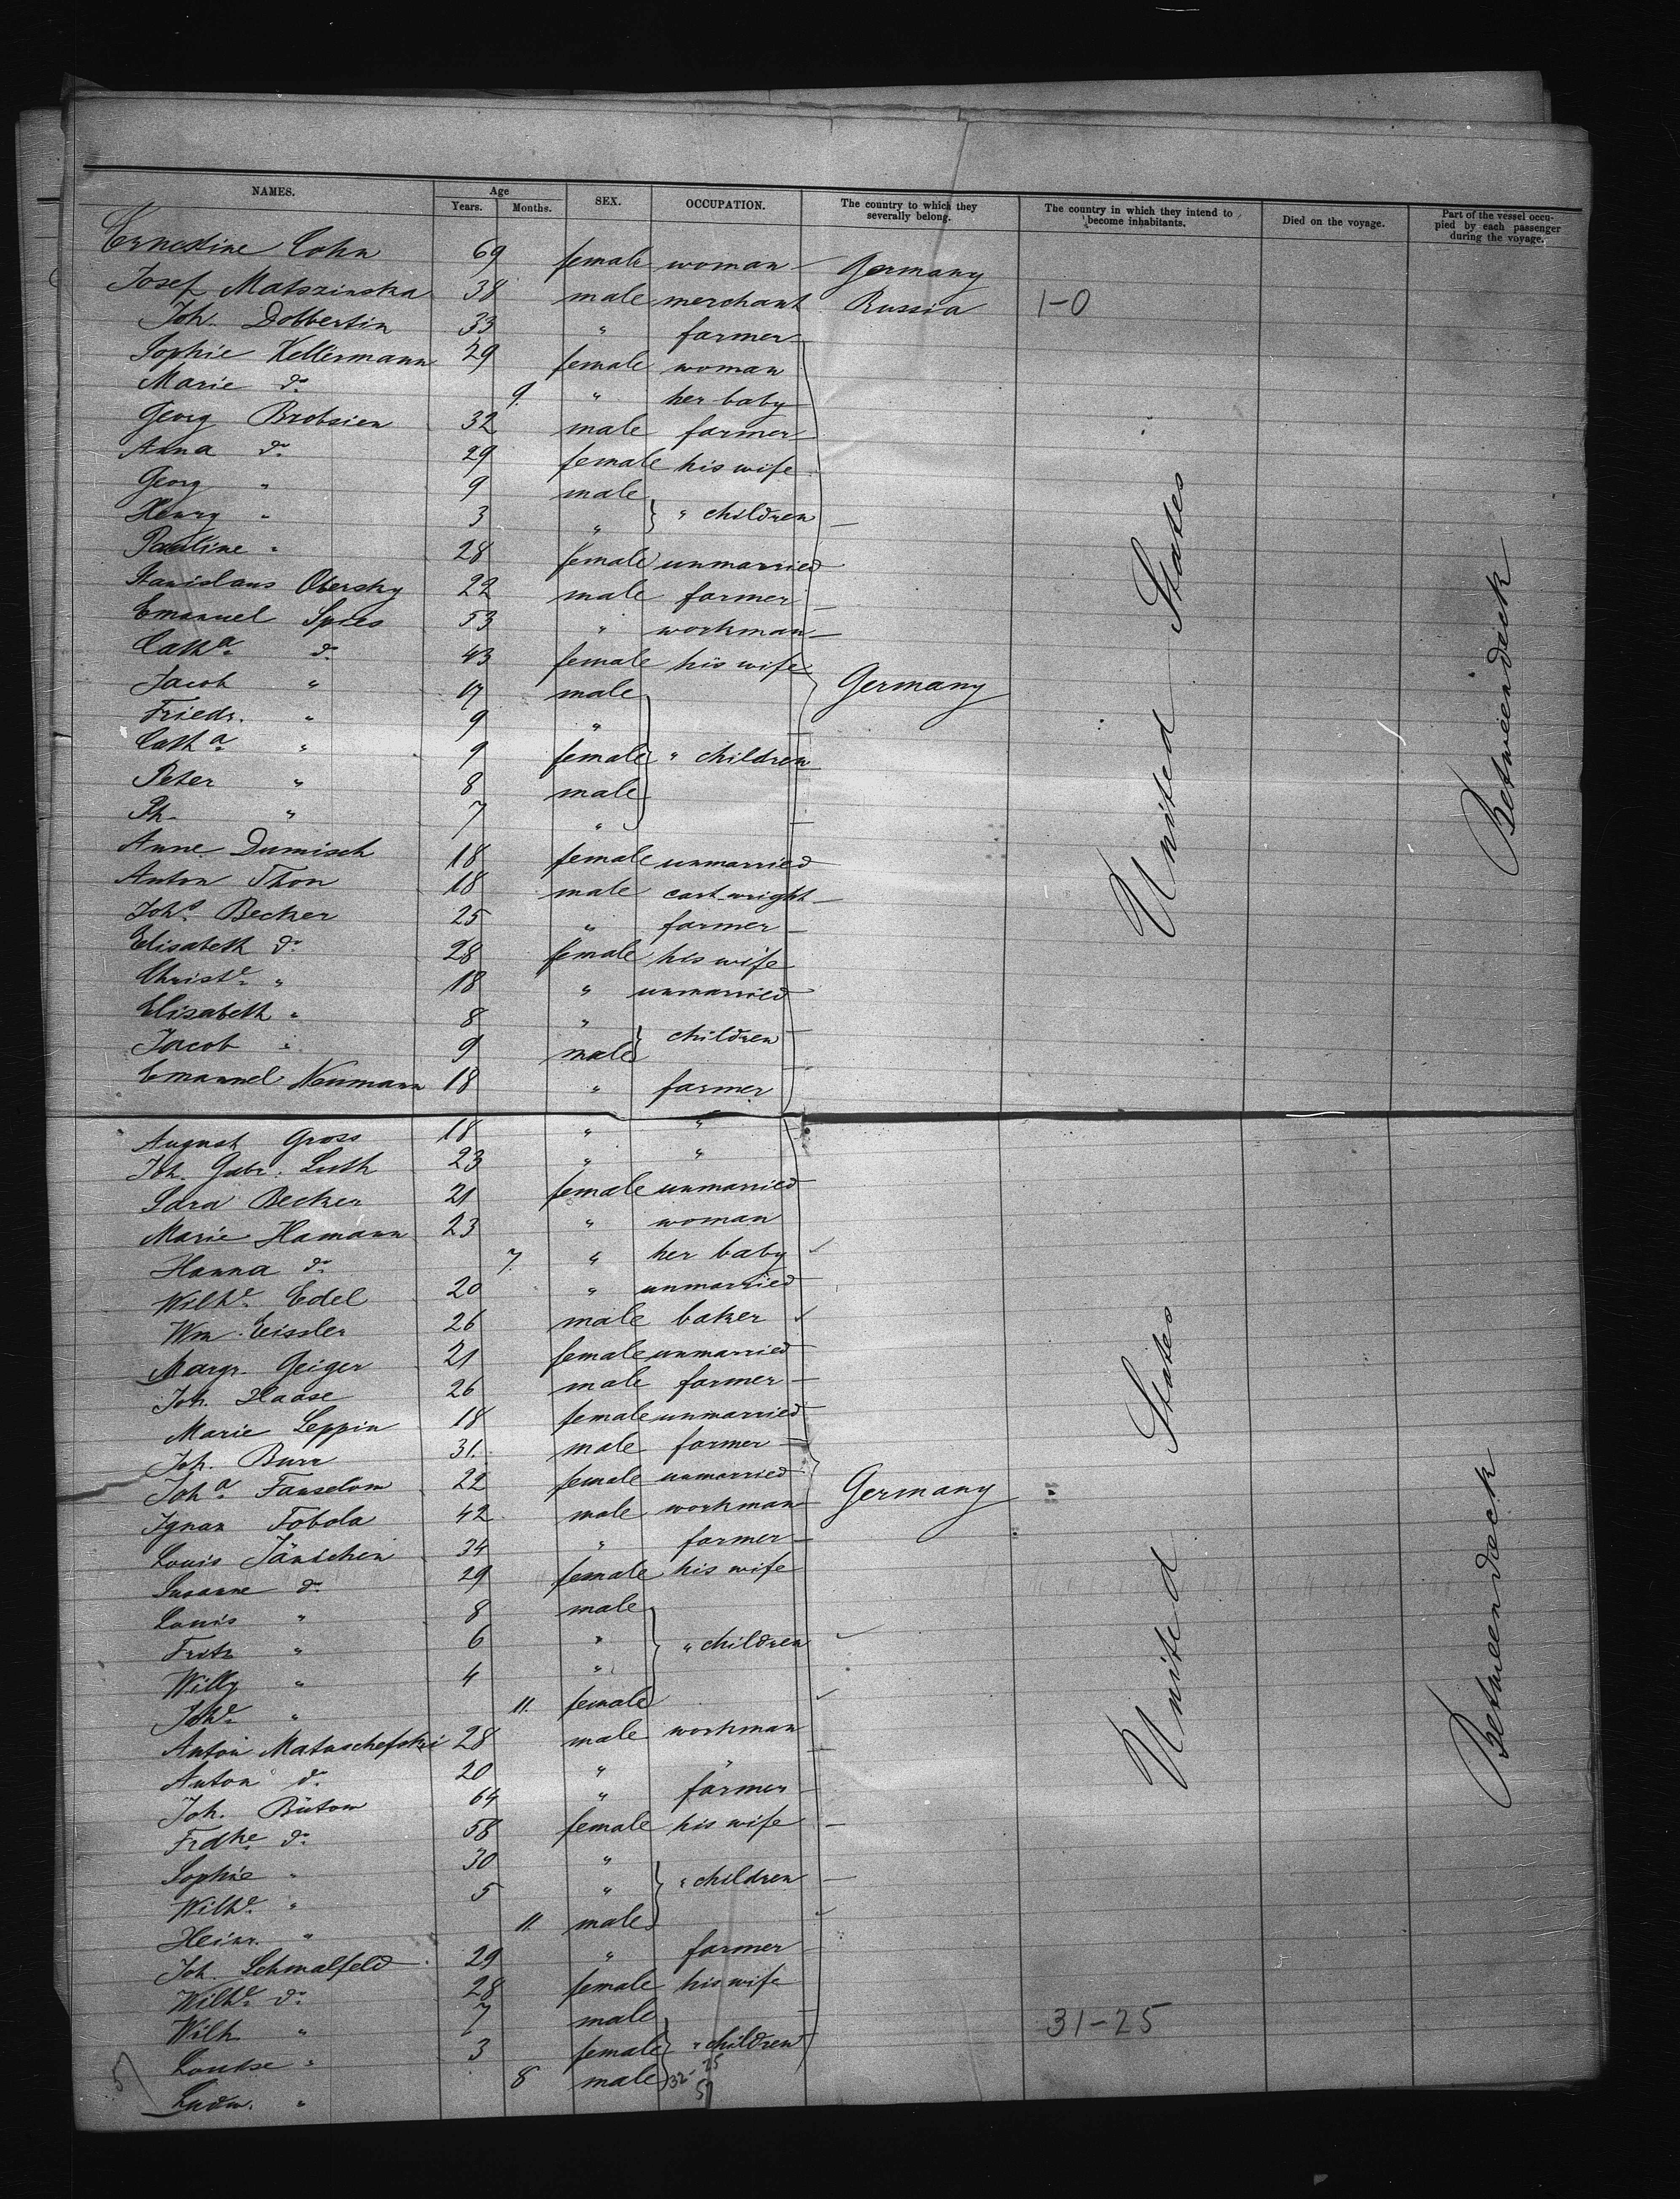 NAMES. Age Years. Months. SEX. OCCUPATION. The country to which they severally belong. The country in which they intend to become inhabitants. Died on the voyage. Part of the vessel occupied by each passenger during the voyage.
Ernestine Cohn 69 female woman Germany
Josef Matszinska 38 male merchant Russia 1-0
Joh. Dobbertin 33 " farmer
Sophie Kellermann 29 female woman
Marie do 9. " her baby
Georg Brobsien 32 male farmer
Anna do 29 female his wife
Georg " 9 male
Henry " 3 " " children
Pauline " 28 female unmarried
Stanislaus Obersky 22 male farmer
Emanuel Spies 53 " workman
Catha. do 43 female his wife
Jacob " 17 male Germany
Friedr. " 9 "
Catha " 9 female " children
Peter " 8 male
Ph. " 7 "
Anne Dumisch 18 female unmarried
Anton Thon 18 male cart-wright
Johs. Becker 25 " farmer
Elisabeth do 28 female his wife
Christe. " 18 " unmarried
Elisabeth " 8 "
Jacob " 9 male children
Emanuel Neumann 18 " farmer
United States
Betweendeck
August Gross 18 " "
Joh. Gabr. Luth 23 " "
Sara Becker 21 female unmarried
Marie Hamann 23 " woman
Hanna do 7. " her baby
Wilhe. Edel 20 " unmarried
Wm. Eissler 26 male baker
Margr. Geiger 21 female unmarried
Joh. Haase 26 male farmer
Marie Leppin 18 female unmarried
Joh. Burr 31. male farmer
Joha. Fanselow 22 female unmarried
Ignaz Tobola 42 male workman Germany
Louis Jänschen 34 " farmer
Susanne do 29 female his wife
Louis " 8 male
Fritz " 6 " " children
Willy " 4 "
Johe. " 11. female
Anton Matuschefski 28 male workman
Anton do 20 " "
Joh. Bütow 64 " farmer
Frdke do 58 female his wife
Sophie " 30 "
Wilhe. " 5 " " children
Heinr. " 11. male
Joh. Schmalfeld 29 " farmer
Wilhe. do 28 female his wife
Wilh. " 7 male
Louise " 3 female " children
Ludw. " 8 male
United States
Betweendeck
31-25
32-25
57
57